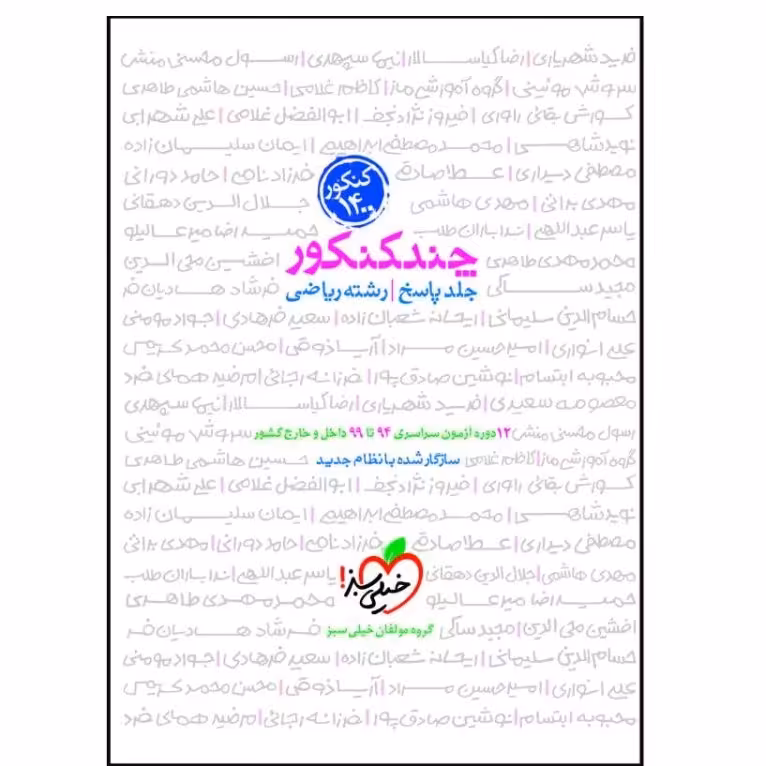 فرید شهریاری | رضا کیاسالار | نیما سپهری | رسول محسنی منش
سروش موئینی | گروه آموزشی ماز | کاظم غلامی | حسین هاشمی طاهری
کورش بقائی راوری | فیروز نژادنجف | ابوالفضل غلامی | علی شهرابی
نوید شاهی | محمد مصطفی ابراهیمی | ایمان سلیمان زاده
مصطفی دیداری | عطا صادقی
فرزاد نامی | حامد دورانی
کنکور
۱۴۰۰
مهدی براتی | مهدی هاشمی
جلال الدین دهقانی
یاسر عبداللهی | ندا باران طلب
حمیدرضا میرعالیلو
محمد مهدی طاهری
چند کنکور
افشین محی الدین
مجید ساکی
جلد پاسخ | رشته ریاضی
فرشاد هادیان فرد
حسام الدین سلیمانی | ریحانه شعبان زاده | سعید فرهادی | جواد مومنی
علی انواری | امیرحسین مراد | آریا ذوقی | محسن محمدکریمی
محبوبه ابتسام | نوشین صادق پور | فرزانه رجائی | مرضیه همای فرد
معصومه سعیدی | فرید شهریاری | رضا کیاسالار | نیما سپهری
رسول محسنی منش
۱۲ دوره آزمون سراسری ۹۴ تا ۹۹ داخل و خارج کشور
سروش موئینی
گروه آموزشی ماز | کاظم غلامی
سازگار شده با نظام جدید
حسین هاشمی طاهری
کورش بقائی راوری | فیروز نژادنجف | ابوالفضل غلامی | علی شهرابی
نوید شاهی | محمد مصطفی ابراهیمی | ایمان سلیمان زاده
مصطفی دیداری | عطا صادقی | فرزاد نامی | حامد دورانی | مهدی براتی
مهدی هاشمی | جلال الدین دهقانی
خیلی سبز!
یاسر عبداللهی | ندا باران طلب
حمیدرضا میرعالیلو
محمد مهدی طاهری
افشین محی الدین | مجید ساکی
گروه مولفان خیلی سبز
فرشاد هادیان فر
حسام الدین سلیمانی | ریحانه شعبان زاده | سعید فرهادی | جواد مومنی
علی انواری | امیرحسین مراد | آریا ذوقی | محسن محمدکریمی
محبوبه ابتسام | نوشین صادق پور | فرزانه رجائی | مرضیه همای فرد